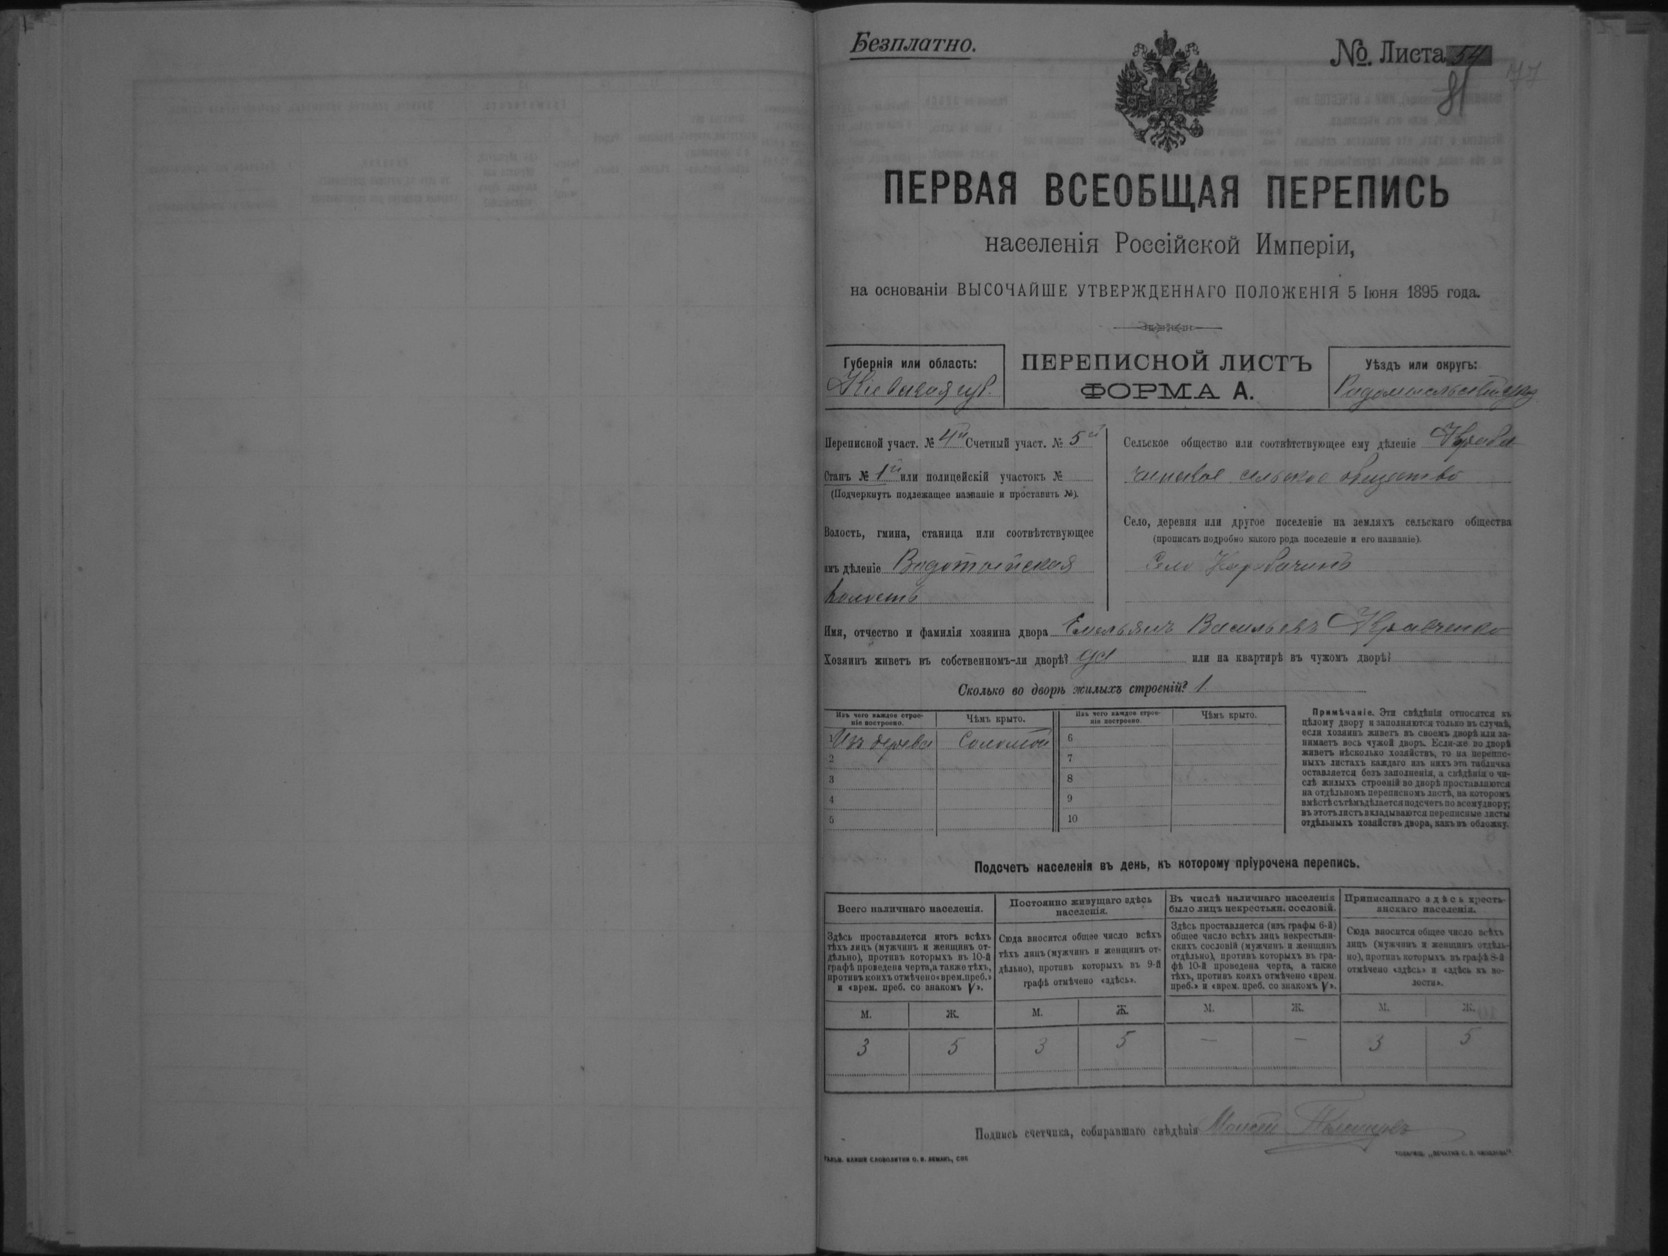 Безплатно.
№. Листа 54
81
ПЕРВАЯ ВСЕОБЩАЯ ПЕРЕПИСЬ
населенія Россійской Имперіи,
на основаніи ВЫСОЧАЙШЕ УТВЕРЖДЕННАГО ПОЛОЖЕНІЯ 5 Іюня 1895 года.
Губернія или область:
Кіевская губ.
ПЕРЕПИСНОЙ ЛИСТЪ
ФОРМА А.
Уѣздъ или округъ:
Радомысльскій уѣзд
Переписной участ. № 4й Счетный участ. № 5й
Станъ № 1й или полицейскій участокъ №
(Подчеркнуть подлежащее названіе и проставить №).
Волость, гмина, станица или соотвѣтствующее
имъ дѣленіе Видотынская
волость
Сельское общество или соотвѣтствующее ему дѣленіе Кораба
чинское сельское общество
Село, деревня или другое поселеніе на земляхъ сельскаго общества
(прописать подробно какого рода поселеніе и его названіе).
Село Корабачинъ
Имя, отчество и фамилія хозяина двора Емельянъ Васильевъ Кравченко
Хозяинъ живетъ въ собственномъ-ли дворѣ? да или на квартирѣ въ чужомъ дворѣ?
Сколько во дворѣ жилыхъ строеній? 1
Изъ чего каждое строе-
ніе построено.
Чѣмъ крыто.
Изъ чего каждое строе-
ніе построено.
Чѣмъ крыто.
1 Изъ дерева Соломой 6
2 7
3 8
4 9
5 10
Примѣчаніе. Эти свѣдѣнія относятся къ
цѣлому двору и заполняются только въ случаѣ,
если хозяинъ живетъ въ своемъ дворѣ или за-
нимаетъ весь чужой дворъ. Если-же во дворѣ
живетъ нѣсколько хозяйствъ, то на перепис-
ныхъ листахъ каждаго изъ нихъ эта табличка
оставляется безъ заполненія, а свѣдѣнія о чи-
слѣ жилыхъ строеній во дворѣ проставляются
на отдѣльномъ переписномъ листѣ, на которомъ
вмѣстѣ съ тѣмъ дѣлается подсчетъ по всему двору;
въ этотъ листъ вкладываются переписные листы
отдѣльныхъ хозяйствъ двора, какъ въ обложку.
Подсчетъ населенія въ день, къ которому пріурочена перепись.
Всего наличнаго населенія.
Здѣсь проставляется итогъ всѣхъ
тѣхъ лицъ (мужчинъ и женщинъ от-
дѣльно), противъ которыхъ въ 10-й
графѣ проведена черта, а также тѣхъ,
противъ коихъ отмѣчено «врем. преб.»
и «врем. преб. со знакомъ V».
Постоянно живущаго здѣсь
населенія.
Сюда вносится общее число всѣхъ
тѣхъ лицъ (мужчинъ и женщинъ от-
дѣльно), противъ которыхъ въ 9-й
графѣ отмѣчено «здѣсь».
Въ числѣ наличнаго населенія
было лицъ некрестьян. сословій.
Здѣсь проставляется (изъ графы 6-й)
общее число всѣхъ лицъ некрестьян-
скихъ сословій (мужчинъ и женщинъ
отдѣльно), противъ которыхъ въ гра-
фѣ 10-й проведена черта, а также
тѣхъ, противъ коихъ отмѣчено «врем.
преб.» и «врем. преб. со знакомъ V».
Приписаннаго здѣсь кресть-
янскаго населенія.
Сюда вносится общее число всѣхъ
лицъ (мужчинъ и женщинъ отдѣль-
но), противъ которыхъ въ графѣ 8-й
отмѣчено «здѣсь» и «здѣсь въ во-
лости».
М. Ж. М. Ж. М. Ж. М. Ж.
3 5 3 5 — — 3 5
Подпись счетчика, собиравшаго свѣдѣнія